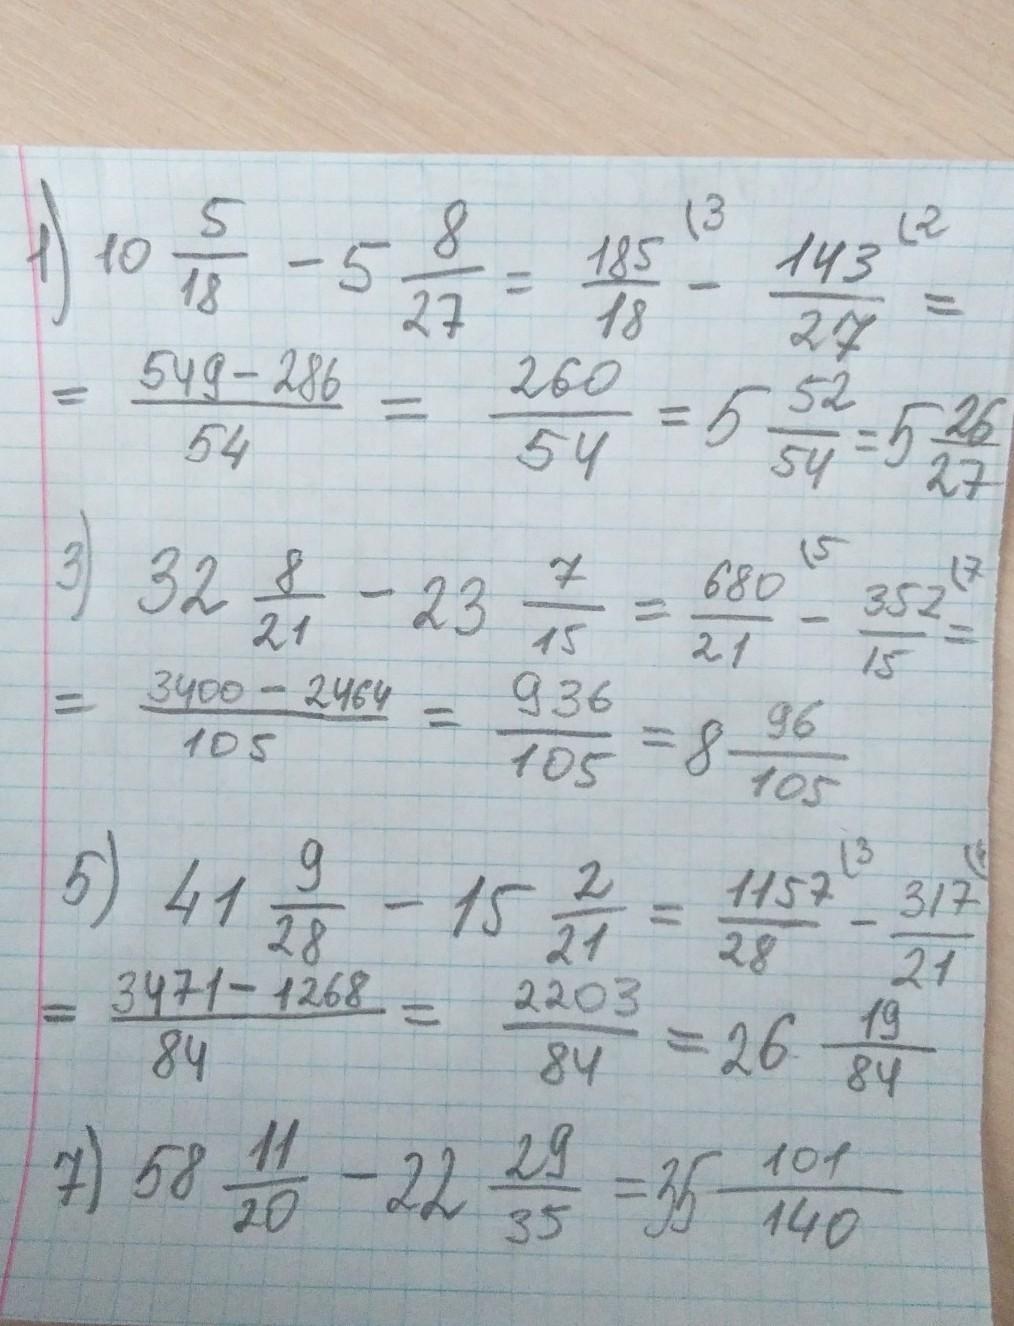 1) 10 5/18 - 5 8/27 = 185/18 (3 - 143/27 (2 =
= 549-286/54 = 260/54 = 5 52/54 = 5 26/27
3) 32 8/21 - 23 7/15 = 680/21 (5 - 352/15 (7 =
= 3400-2464/105 = 936/105 = 8 96/105
5) 41 9/28 - 15 2/21 = 1157/28 (3 - 317/21
= 3471-1268/84 = 2203/84 = 26 19/84
7) 58 11/20 - 22 29/35 = 35 101/140